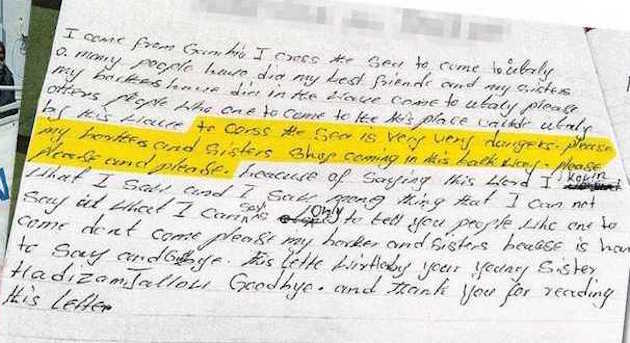 I come from Gambia I cross the Sea to come to utaly
a many people have dia my best friends and my sisters
my borkers have dia in the Vouce come to utaly please
others people who one to come to the this place utaly
by this Vouce to corss the Sea is very very dangers. please
my borkers and sisters stop coming in this batk way. please
please and please. because of saying this Word I
what I saw and I saw many thing that I can not
say at what I can say only to tell you people who one to
come dont come please my borker and sisters because is hard
to say and Gbye. this lette by your young Sister
Hadizam Jallow Goodbye. and thank you for reading
this letter